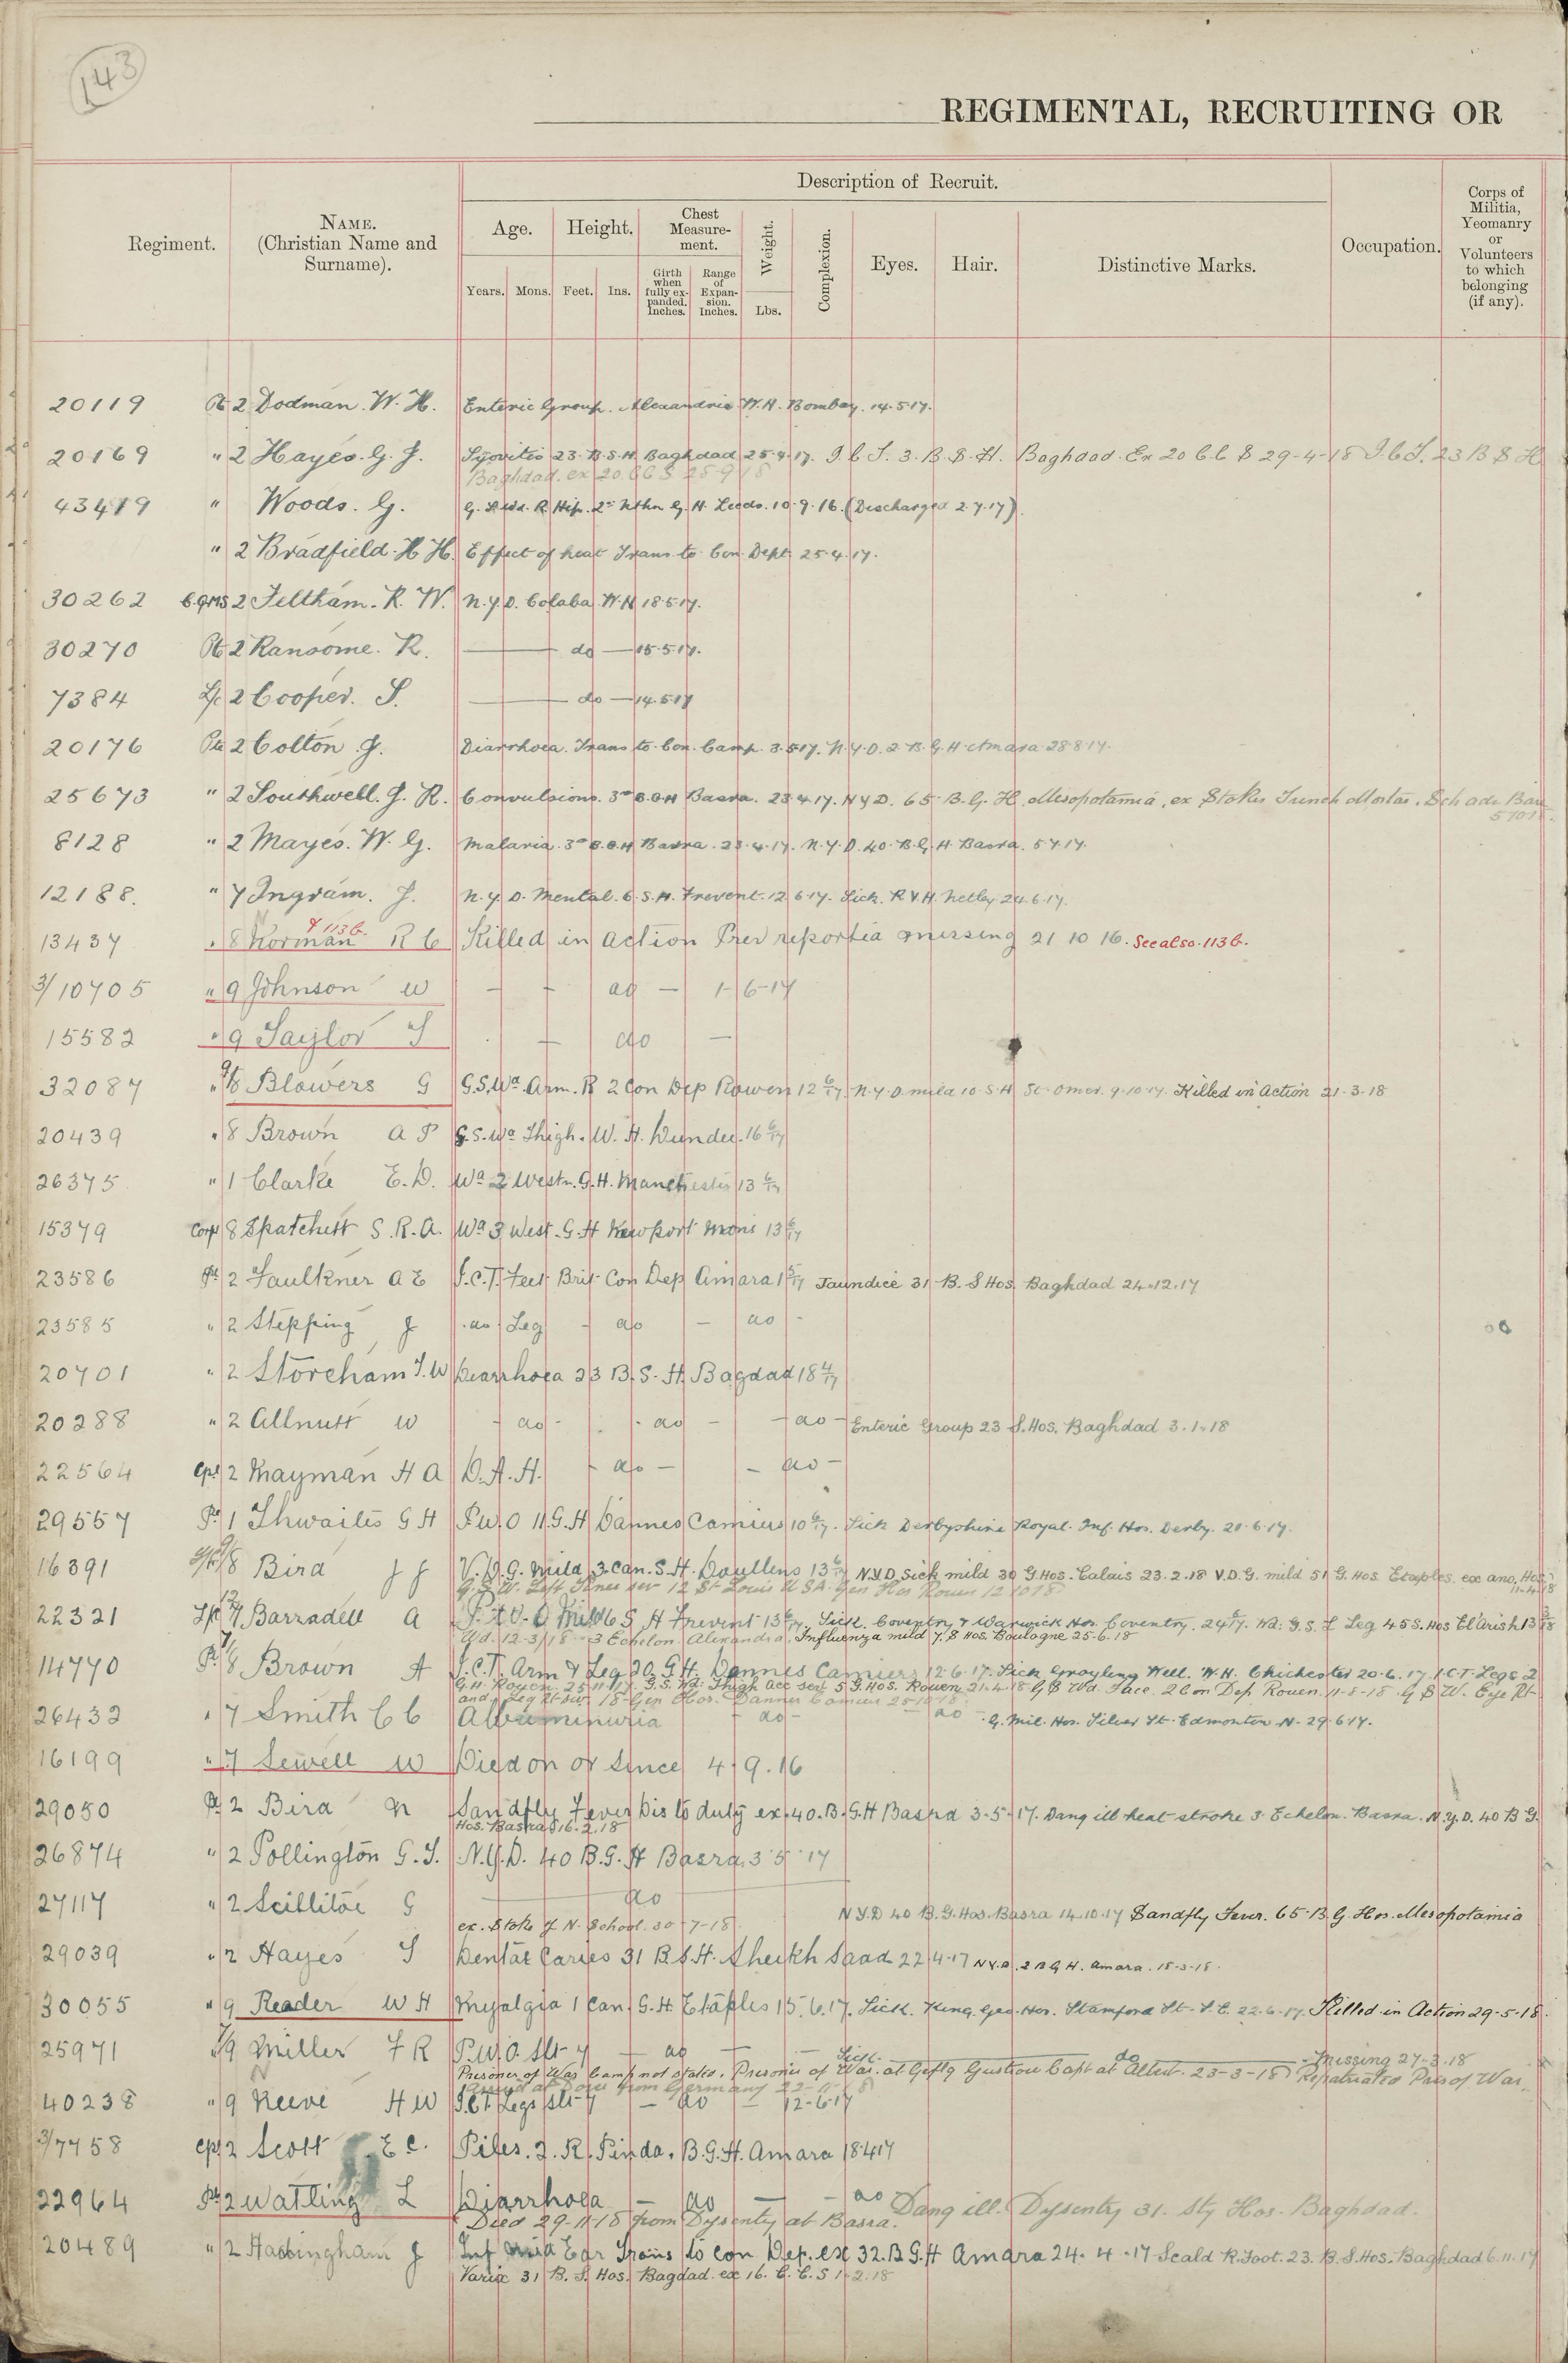 143
REGIMENTAL, RECRUITING OR
Regiment.
NAME.
(Christian Name and
Surname).
Description of Recruit.
Age.
Height.
Chest
Measure-
ment.
Weight.
Complexion.
Eyes.
Hair.
Distinctive Marks.
Occupation.
Corps of
Militia,
Yeomanry
or
Volunteers
to which
belonging
(if any).
Years.
Mons.
Feet.
Ins.
Girth
when
fully ex-
panded.
Inches.
Range
of
Expan-
sion.
Inches.
Lbs.
20119 Pte 2 Dodman. W. H. Enteric Group. Alexandria W.H. Bombay. 14.5.17.
20169 " 2 Hayes. G. J. 23. B.S.H. Baghdad 25.4.17. I.C.T. 3. B.S.H. Baghdad. Ex 20 C.C.S 29-4-18 I.C.T. 23 B S H
Baghdad. ex 20 CCS 28-9-18
43419 " Woods. G. G.S.Wd. R Hip. 2nd Nthn G.H. Leeds. 10.9.16. (Discharged 2.7.17).
" 2 Bradfield. H H. Effect of heat Trans to Con Dept 25.4.17.
30262 C.QMS 2 Feltham. R. W. N.Y.D. Colaba W.H 18.5.17.
30270 Pte 2 Ransome. R. — do — 15.5.17.
7384 L/c 2 Cooper. S. — do — 14.5.17
20176 Pte 2 Colton. J. Diarrhoea. Trans to Con. Camp. 3.5.17. N.Y.D. 2. B.G.H. Amara 28.8.17.
25673 " 2 Southwell. J. R. Convulsions. 3rd B.G.H Basra. 23.4.17. N Y D. 65 B.G. H. Mesopotamia, ex Stokes Trench Mortar. Sch adv. Base
5 10 18.
8128 " 2 Mayes. W. G. Malaria. 3rd B.G.H Basra. 23.4.17. N.Y.D. 40. B.G.H. Basra. 5.7.17.
12188. " 7 Ingram. J. N.Y.D. Mental. 6.S.H. Frevent. 12.6.17. Sick. R.V.H. Netley 24.6.17.
& 113 b.
13437 " 8 Norman R C Killed in action Prev reported missing 21 10 16. See also. 113 b.
3/10705 " 9 Johnson W — do — 1-6-17
15582 " 9 Taylor T — do —
32087 " 9/8 Blowers G G.S.Wd. Arm. R 2 Con Dep Rowen 12 6/17 N.Y.D. mild 10 S.H St. Omer. 9.10.17. Killed in Action 21.3.18
20439 " 8 Brown A P G.S.Wd Thigh. W. H. Dundee. 16 6/17
26375 " 1 Clarke E.D. Wd 2 Westn. G.H. Manchester 13 6/17
15379 Corpl 8 Spatchett S.R.A. Wd 3 West. G.H Newport Mons 13 6/17
23586 Pte 2 Faulkner A E I.C.T. Feet Brit Con Dep Amara 1 5/17 Jaundice 31 B. S Hos. Baghdad 24.12.17
23585 " 2 Stepping J do Leg — do — do —
20701 " 2 Storeham T.W Diarrhoea 23 B.S. H. Bagdad 18 4/17
20288 " 2 Allnutt W — do — do — do — Enteric Group 23 S. Hos. Baghdad 3.1.18
22564 Cpl 2 Mayman H A D.A.H. — do — — do —
29557 Pte 1 Thwaites G H P.U.O 11 G.H Dannes Camiers 10 6/17. Sick Derbyshire Royal. Inf. Hos. Derby. 20.6.17.
16391 9/8 Bird J J V.D.G. mild 3 Can. S.H. Doullens 13 6/17 N.Y.D. Sick mild 30 G. Hos. Calais 23.2.18 V.D.G. mild 51 G. Hos. Etaples. ex ano. Hos
G.S.W. Left Knee sev 12 St Louis U.S.A. Gen Hos Rouen 12 10 18 11.4.18
22321 L/c 7 Barradell A P.U.O. Mild 6 S H Frevent 13 6/17. Sick. Coventry & Warwick Hos. Coventry. 24 6/17. Wd: G.S. L Leg 45 S. Hos El Arish 13 3/18
Wd. 12-3/18 - 3 Echelon Alexandria. Influenza mild 7. S Hos. Boulogne 25-6-18
14770 Pte 7/8 Brown A I.C.T. Arm & Leg 20 G.H. Dannes Camiers 12.6.17. Sick Grayling Well. W.H. Chichester 20.6.17 I.C.T. Legs 2
G.H. Rouen 25.11.17. G.S. Wd. Thigh acc sev 5 G. Hos. Rouen. 21.4.18 G S Wd. Face. 2 Con Dep Rouen. 11-8-18 G S W. Eye Rt
and Leg Rt sev 18 Gen Hos. Dannes Camiers 25 10 18
26432 " 7 Smith C C Albuminuria — do — do . G. Mil. Hos. Silver St. Edmonton N. 29.6.17.
16199 " 7 Sewell W Died on or Since 4.9.16
29050 Pte 2 Bird N Sandfly Fever Dis to duty ex. 40. B.G.H Basra 3.5.17. Dang ill heat stroke 3 Echelon. Basra. N.Y.D. 40 B G.
Hos. Basra 16.2.18
26874 " 2 Pollington G.T. N.Y.D. 40 B.G.H Basra. 3 5 17
27117 " 2 Scillitoe G — do — N.Y.D 40 B.G. Hos. Basra 14.10.17 Sandfly Fever. 65 B.G. Hos. Mesopotamia
ex. Stoke J N. School. 30-7-18.
29039 " 2 Hayes T Dental Caries 31 B.S.H. Sheikh Saad 22.4.17 N.Y.D. 2 B G H. Amara. 18-3-18.
30055 " 9 Reader W H Myalgia 1 Can. G.H. Etaples 15.6.17. Sick. King. Geo. Hos. Stamford St. S.E. 22.6.17. Killed in Action 29-5-18.
25971 7/9 Miller F R P.U.O. Slt-y — do — — Sick. do — Missing 27-3-18
Prisoner of War Camp not stated. Prisoner of War. at Gefl'g Gustrow Capt at Albert. 23-3-18 Repatriated Pris of War.
Arrived at Dover from Germany
40238 " 9 Reeve H W I.C.T. Legs Slt-y — do — 12-6-17
3/7758 Cpl 2 Scott E C. Piles. 2. R. Pinda. B.G.H. Amara 18.4.17
22964 Pte 2 Watling L Diarrhoea — do — — do Dang ill. Dysentry 31. Sty Hos. Baghdad.
Died 29-11-18 from Dysentry at Basra.
20489 " 2 Hassingham J Inf mid Ear Trans to con Dep. ex 32. B G.H Amara 24.4.17 Scald R. Foot. 23. B.S. Hos. Baghdad 6.11.17
Varix 31 B. S. Hos. Bagdad ex 16. C.C.S 1.2.18